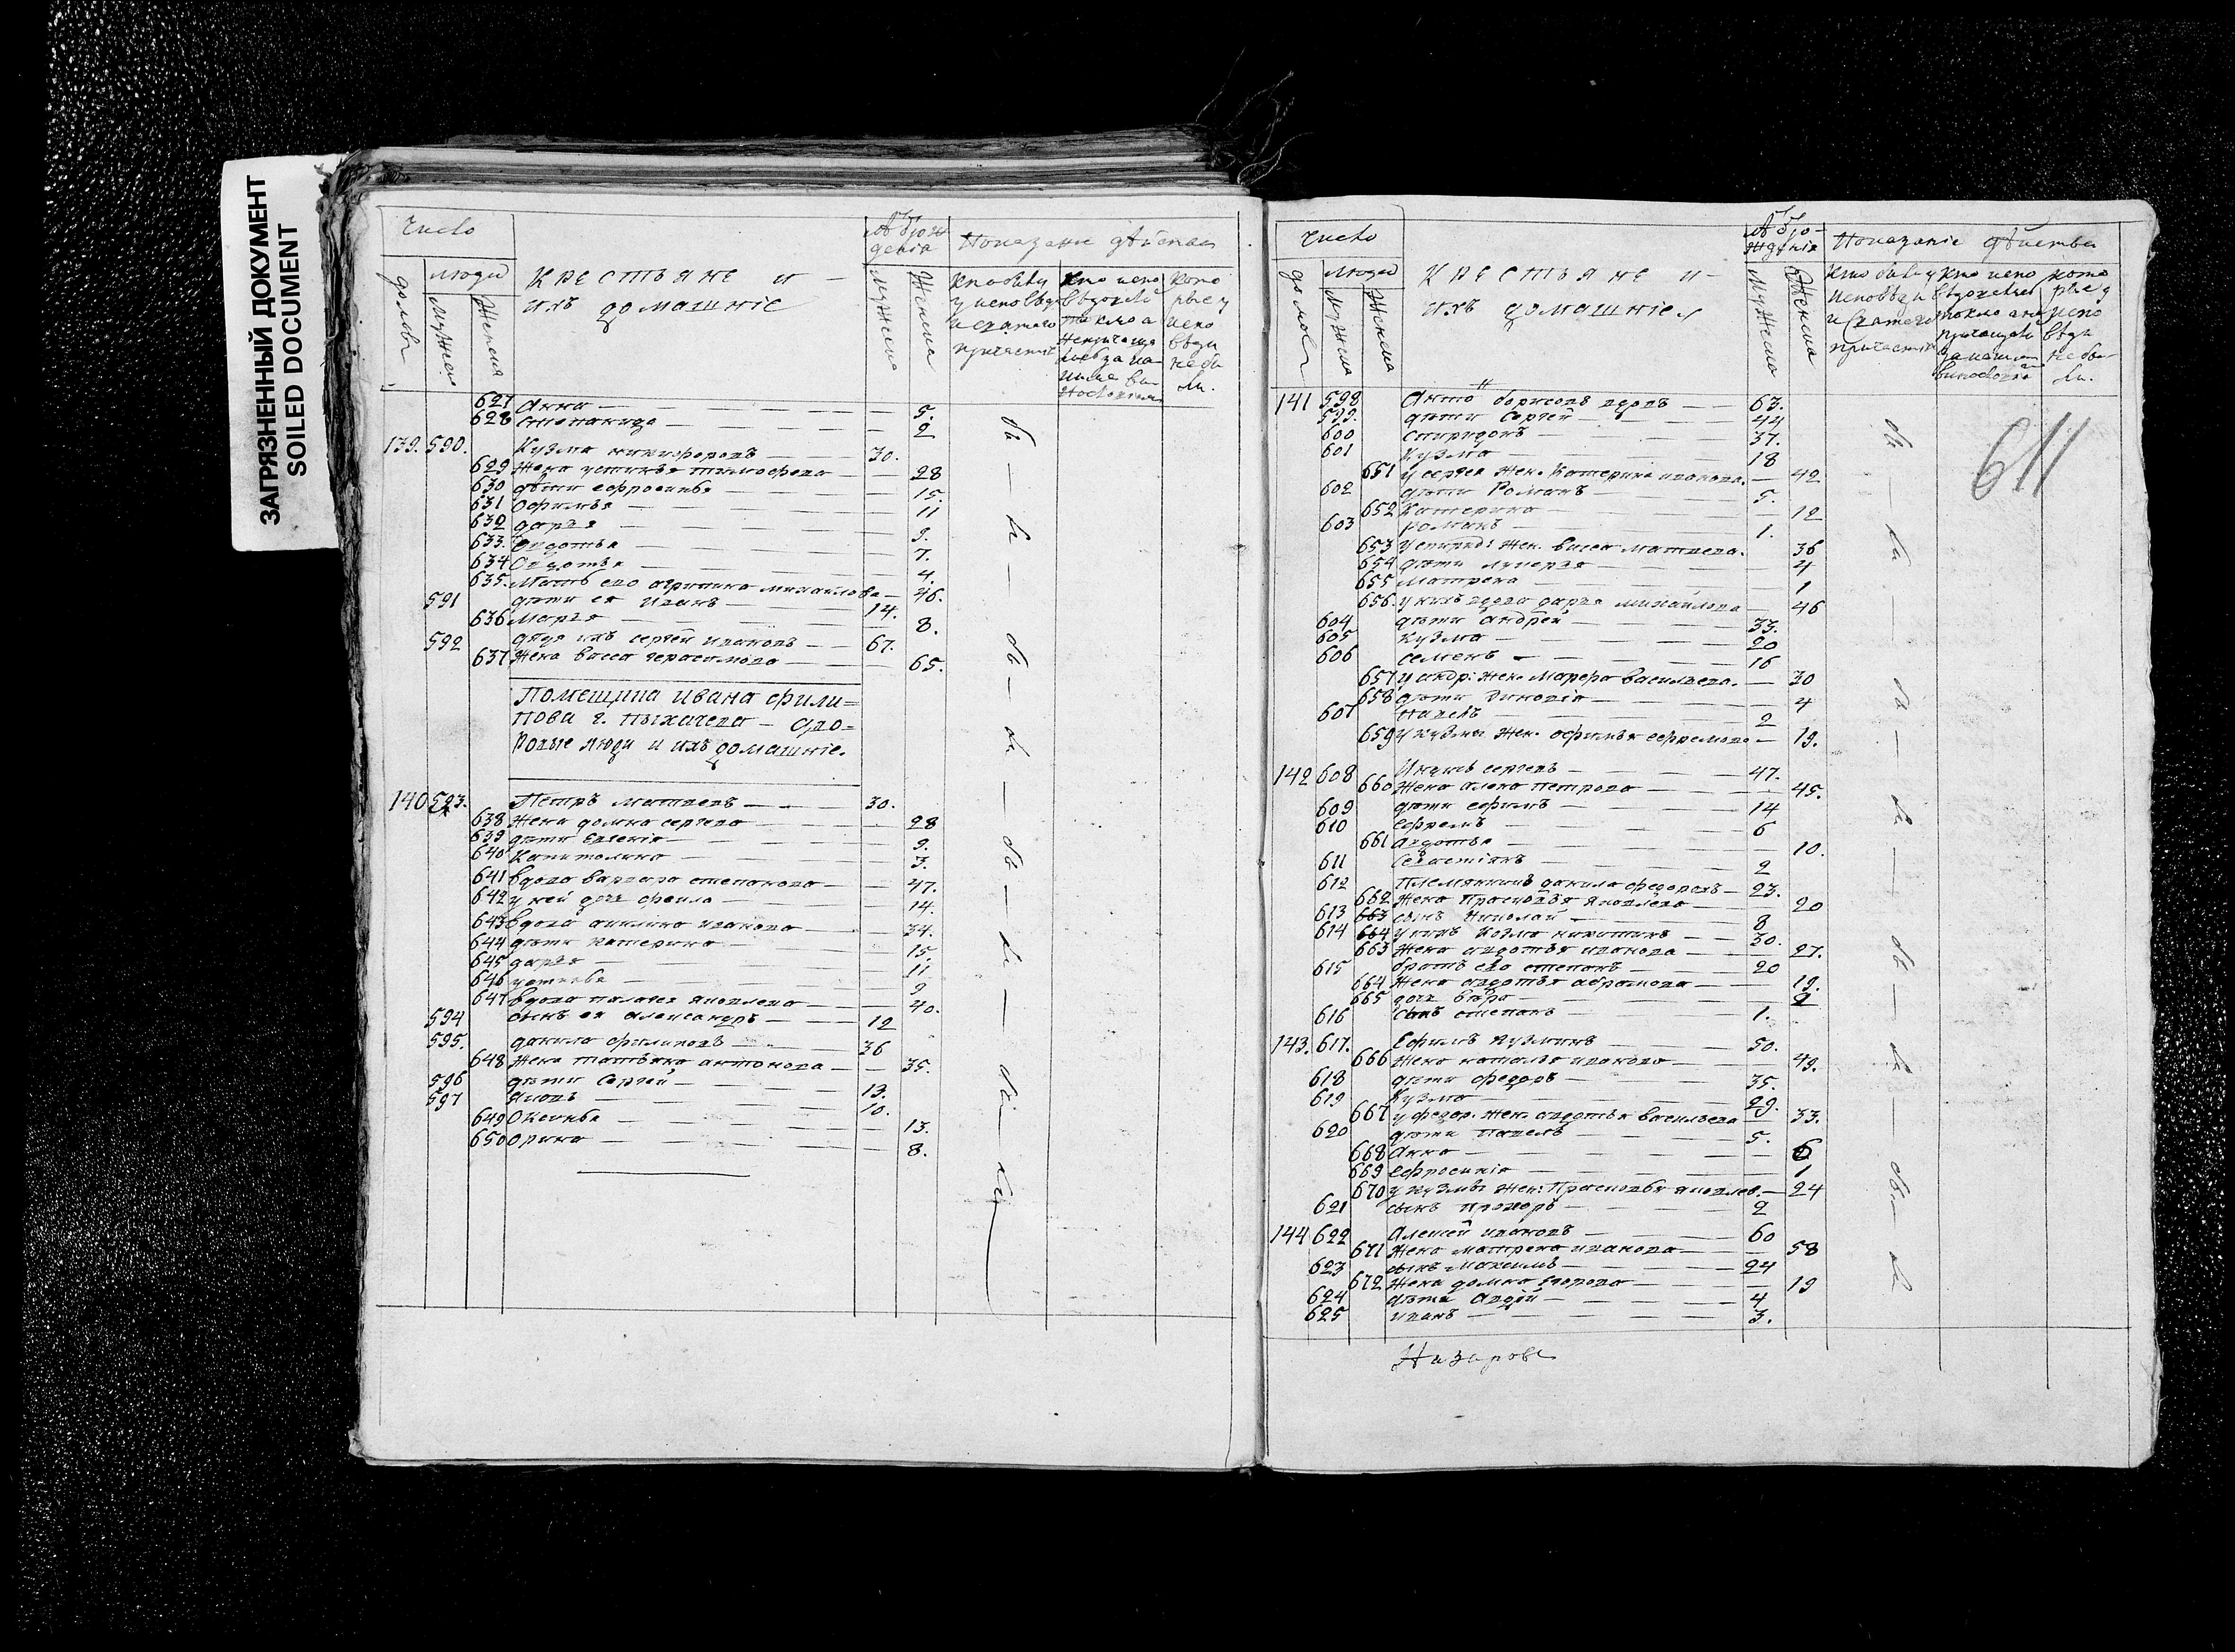 ЗАГРЯЗНЕННЫЙ ДОКУМЕНТ
SOILED DOCUMENT
число
домовъ
людей
мужеска
женска
крестьяне и
ихъ домашніе
мужеска
женска
627 Анна — 5.
628 Степанида — 2
139. 590. Кузма никифоровъ — 30.
629 Жена устинья тимофеева — 28
630 дѣти ефросинья — 15.
631 Офимья — 11
632 дарья — 9.
633. Авдотья — 7.
634 Авдотья — 4.
635. Мать ево агрипина михайлова — 46.
591 дѣти ея иванъ — 14.
636 Марья — 8.
592 дядя ихъ сергей ивановъ — 67.
637 Жена васса герасимова — 65.
Помещика ивана фили=
пова г. пыхачева дво=
ровые люди и ихъ домашніе.
140 593. Петръ матвеевъ — 30.
638 Жена домна сергеева — 28
639 дѣти Евгенія — 9.
640 Капитолина — 3.
641 вдова варвара степанова — 47.
642 у ней дочь фекла — 14.
643 вдова акилина иванова — 34.
644 дѣти катерина — 15.
645 дарья — 11
646 устинья — 9
647 вдова палагея яковлева — 40.
594 сынъ ея александръ — 12
595. данило филиповъ — 36
648 Жена татьяна антонова — 35.
596 дѣти Сергей — 13.
597 яковъ — 10.
649 Оксинья — 13.
650 Орина — 8.
число
домовъ
людей
мужеска
женска
крестьяне и
ихъ домашніе
мужеска
женска
611
141 598 борисовъ вдовъ — 63.
599. дѣти Сергей — 44
600 спиридонъ — 37.
601 Кузма — 18
651 у сергея жен. Катерина иванова. — 42
602 дѣти Романъ — 5.
652 Катерина — 12
603 романъ — 1.
653 у спирид: жен. васса матвеева. — 36
654 дѣти лукерья — 4
655 матрена — 1
656. у нихъ вдова дарья михайлова — 46
604 дѣти андрей — 33.
605 кузма — 20
606 семенъ — 16
657 у андр: жен. марфа васильева. — 30
658 дѣти — 4
607 павелъ — 2
659 у кузмы жен. офимья ефремова — 19.
142 608 сергеевъ — 47.
660 Жена алена петрова — 45.
609 дѣти ефимъ — 14
610 ефремъ — 6
661 авдотья — 10.
611 Севастіянъ — 2
612 племянникъ данило федоровъ — 23.
662 жена Прасковья яковлева — 20
613 663 сынъ Николай — 8
614 664 у нихъ козма никитинъ — 30.
663 жена авдотья иванова — 27.
615 братъ ево степанъ — 20
664 жена авдотья абрамова — 19.
665 дочь вѣра — 2
616 сынъ степанъ — 1.
143. 617. Ефимъ кузминъ — 50.
666 Жена наталья иванова — 49.
618 дѣти федоръ — 35.
619 Кузма — 29.
667 у федор. жен. авдотья васильева — 33.
620 дѣти павелъ — 5.
668 Анна — 6
669 Ефросинія — 1
670 у кузмы жен: Прасковья яковлев. — 24
621 сынъ прохоръ — 2
144 622 Алексей ивановъ — 60
671 Жена матрена иванова — 58
623 сынъ максимъ — 24
672 жена домна егорова — 19
624 дѣти Авдѣй — 4
625 иванъ — 3.